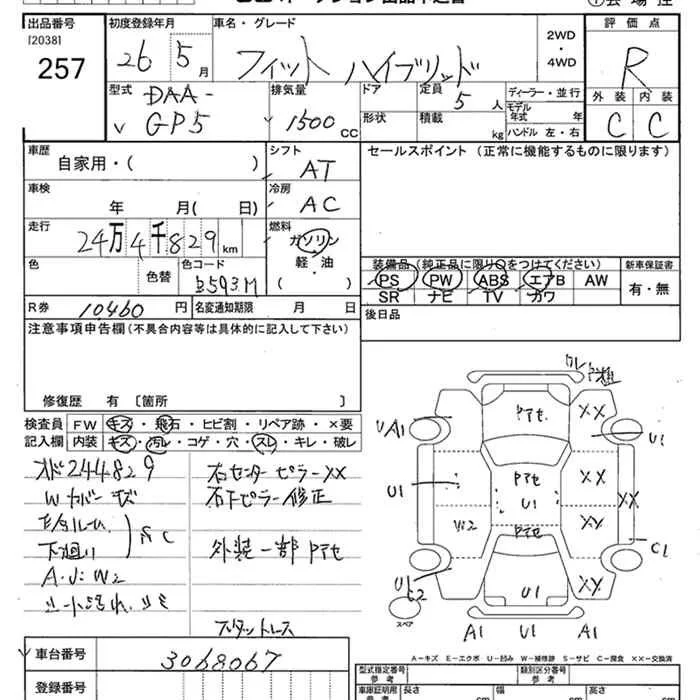 出品番号 初度登録年月 車名・グレード 2WD・4WD 評価点
[2038]
257
26 5月 フィット ハイブリッド R
型式 排気量 ドア 定員 5人 ディーラー・並行 外装 内装
DAA-
GP5 1500 CC 形状 積載 kg モデル年式 年 ハンドル 左・右 C C
車歴 シフト セールスポイント (正常に機能するものに限ります)
自家用・( ) AT
車検 冷房
年 月( 日) AC
走行 燃料
24万4千829 km ガソリン
軽・油
( )
色 色替 色コード B593M
装備品 (純正品に限り○をつけてください) 新車保証書
PS PW ABS エアB AW 有・無
SR ナビ TV カワ
R券 10460円 名変通知期限 月 日 後日品
注意事項申告欄 (不具合内容等は具体的に記入して下さい)
修復歴 有 [箇所 ]
検査員 FW キズ・飛石・ヒビ割・リペア跡・×要
記入欄 内装 キズ・汚レ・コゲ・穴・スレ・キレ・破レ
244829 右センターピラーXX
Wカバーキズ 右Fピラー修正
下廻り サC 外装一部P下セ
A・J:W2
車台番号 3068067
登録番号
UA1 U1 U1 XX XX XX XX XX
W2 C1 U1
A1 U1 A1
スペア
A-キズ E-エクボ U-凹み W-補修跡 S-サビ C-腐食 ××-交換済
型式指定番号 参考 類別区分番号 参考
車庫証明用 参考 長さ cm 幅 cm 高さ cm